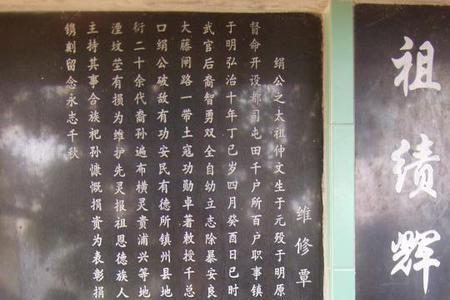 祖绩辉
维修覃
绢公之太祖仲文生于元殁于明原
督命开设都司屯田千户所百户职事镇
于明弘治十年丁巳岁四月癸酉日巳时
武官后裔智勇双全自幼立志除暴安良
大藤闸路一带土寇功勋卓著教授千总
口绢公破敌有功安民有德所镇州县地
衍二十余代裔孙遍布横灵贵浦兴等地
湮坟茔有损为维护先灵报祖恩德族人
主持其事合族祀孙慷慨捐资为表彰捐
镌刻留念永志千秋